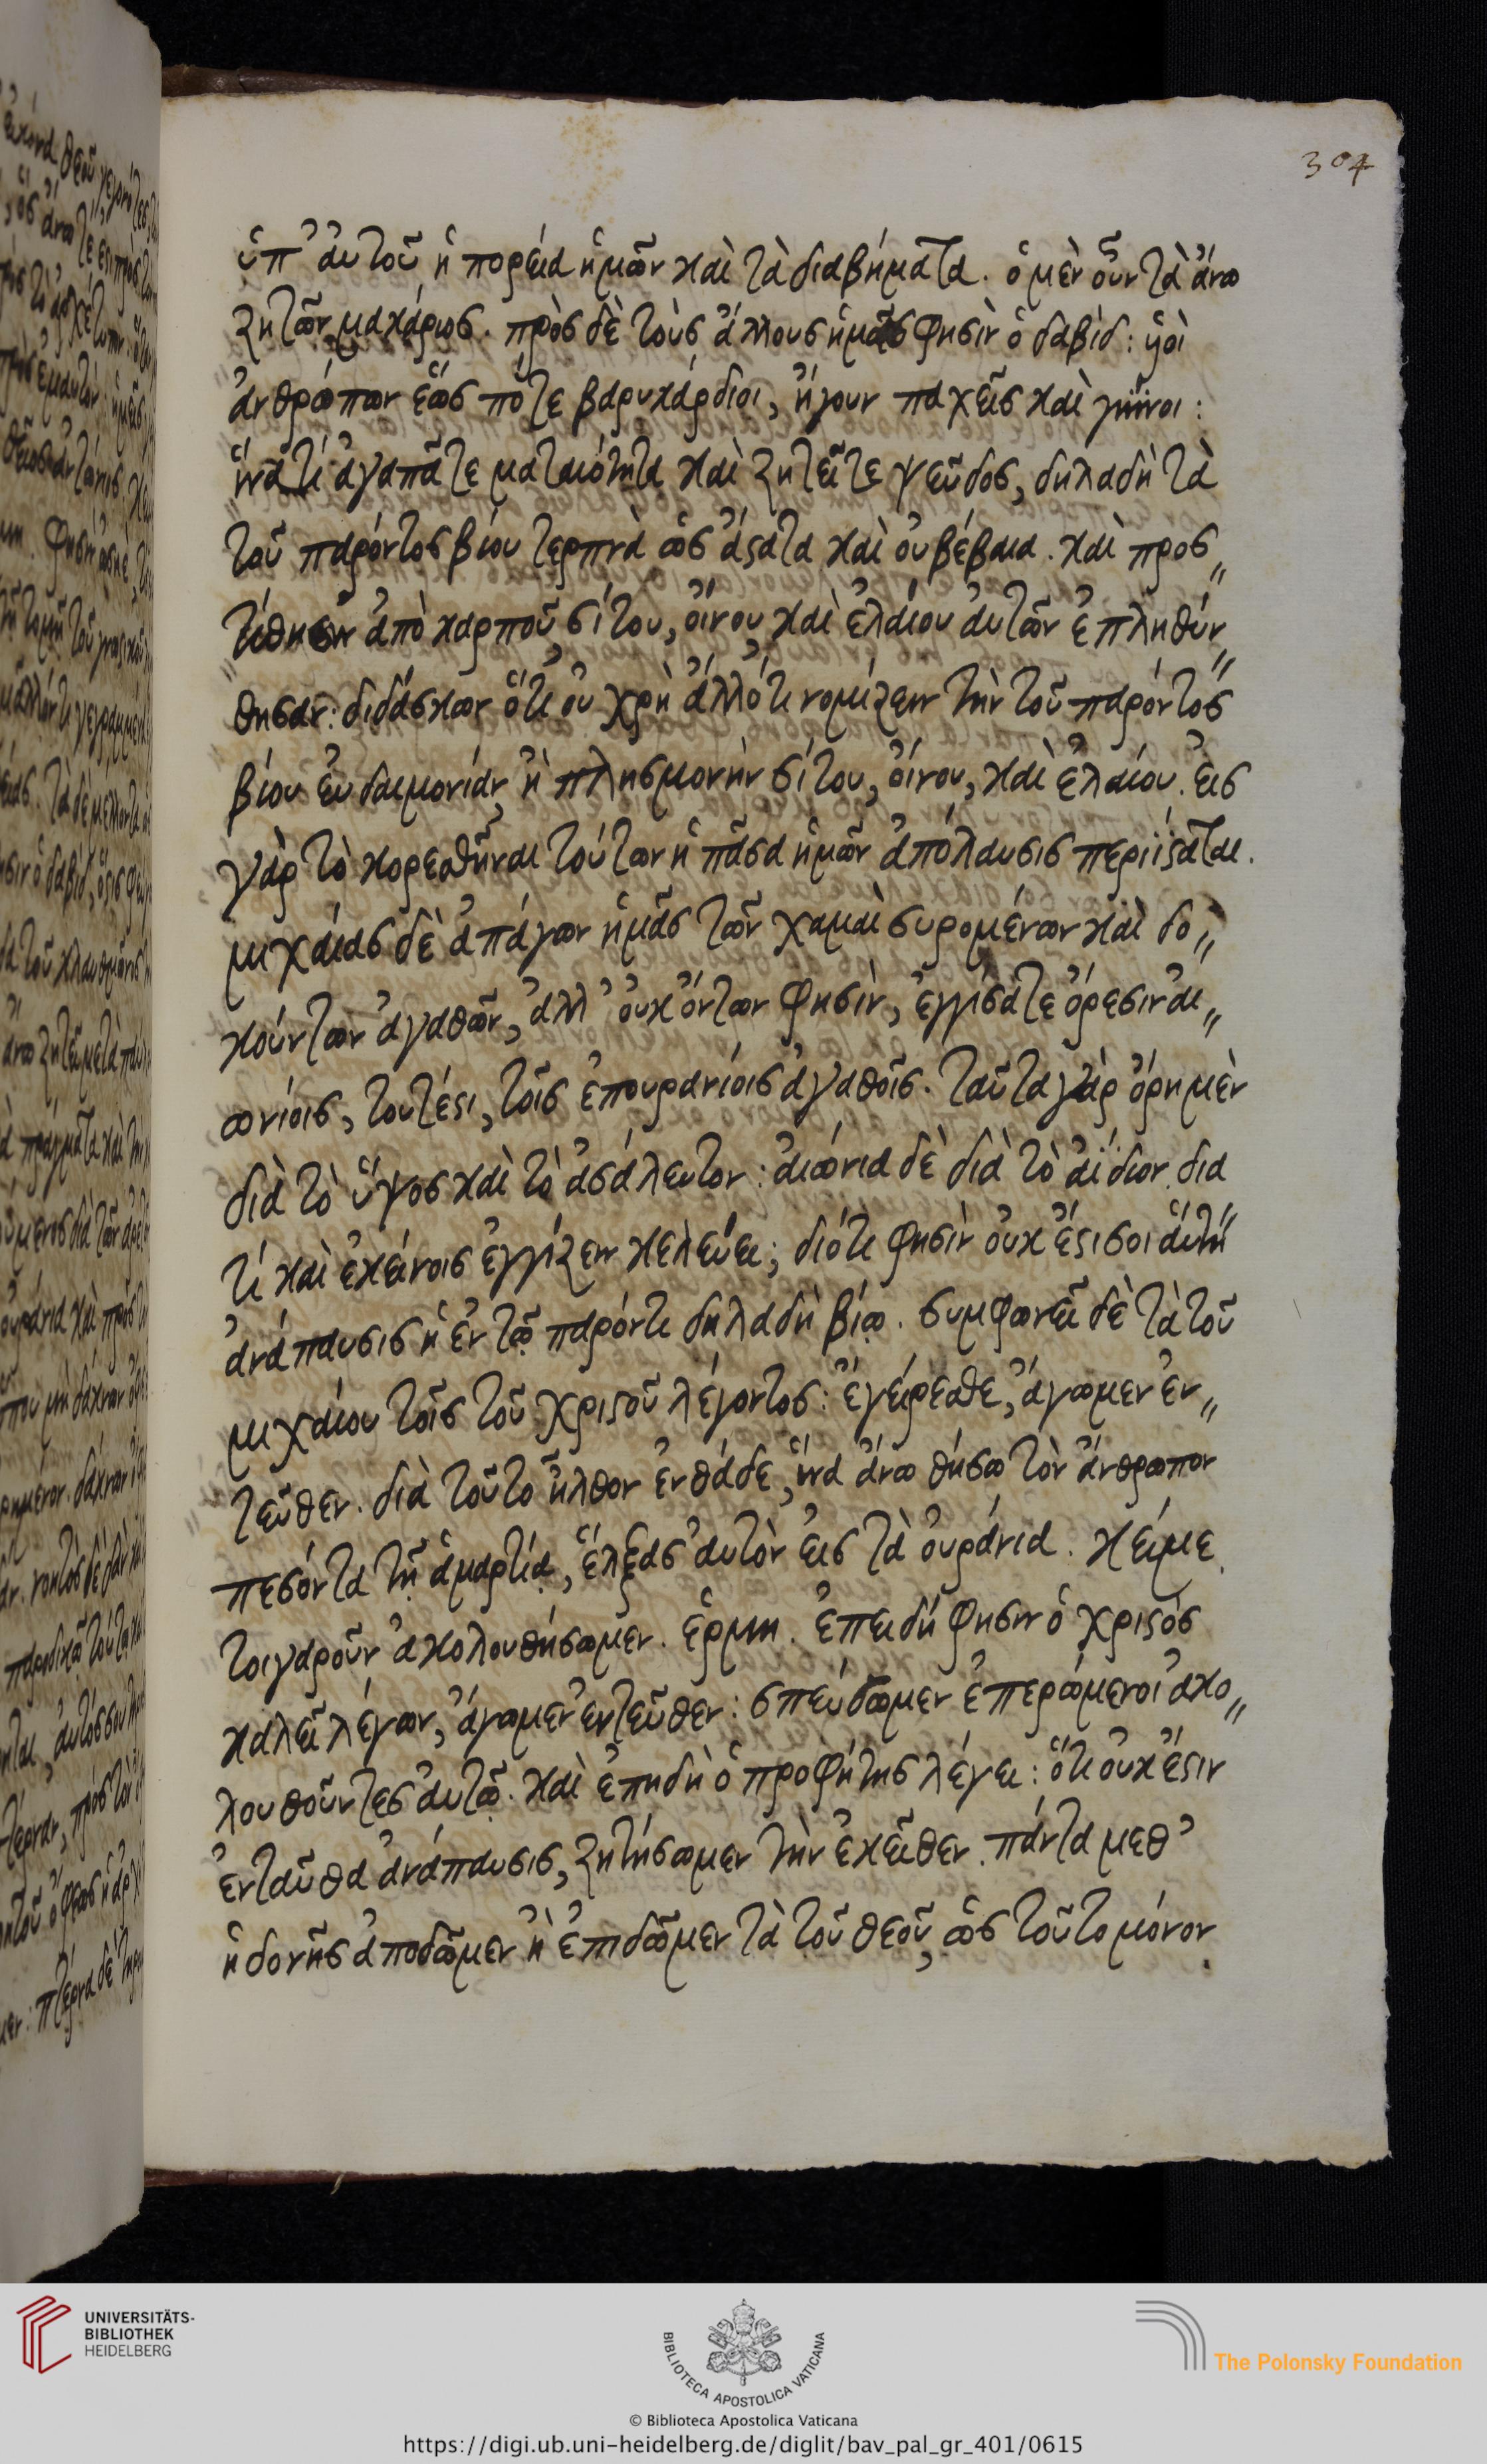 304
ὑπ' αὐτοῦ ἡ πορεία ἡμῶν καὶ τὰ διαβήματα. ὁ μὲν οὖν τὰ ἄνω
ζητῶν, μακάριος. πρὸς δὲ τοὺς ἄλλους ἡμᾶς φησὶν ὁ δαβίδ: ὑοὶ
ἀνθρώπων ἕως πότε βαρυκάρδιοι, ἤγουν παχεῖς καὶ γήϊνοι:
ἵνατί ἀγαπᾶτε ματαιότητα καὶ ζητεῖτε ψεῦδος, δηλαδὴ τὰ
τοῦ παρόντος βίου τερπνὰ ὡς ἄϛατα καὶ οὐ βέβαια. καὶ προσ„
τίθησιν ἀπὸ καρποῦ σίτου, οἴνου, καὶ ἐλαίου αὐτῶν ἐπληθύν„
θησαν: διδάσκων ὅτι οὐ χρὴ ἄλλό τι νομίζειν τὴν τοῦ παρόντος
βίου εὐδαιμονίαν, ἢ πλησμονὴν σίτου, οἴνου, καὶ ἐλαίου. εἰς
γὰρ τὸ κορεσθῆναι τούτων ἡ πᾶσα ἡμῶν ἀπόλαυσις περιΐϛαται.
μιχαίας δὲ ἀπάγων ἡμᾶς τῶν χαμαὶ συρομένων καὶ δο„
κούντων ἀγαθῶν, ἀλλ' οὐκ ὄντων φησὶν, ἐγγίσατε ὄρεσιν αἰ„
ωνίοις, τουτέϛι, τοῖς ἐπουρανίοις ἀγαθοῖς. ταῦτα γὰρ ὄρη μὲν
διὰ τὸ ὕψος καὶ τὸ ἀσάλευτον: αἰώνια δὲ διὰ τὸ ἀΐδιον. δια
τί καὶ ἐκείνοις ἐγγίζειν κελεύει; διότι φησὶν οὐκ ἔϛι σοι αὕτη
ἀνάπαυσις ἡ ἐν τῷ παρόντι δηλαδὴ βίῳ. συμφωνεῖ δὲ τὰ τοῦ
μιχαίου τοῖς τοῦ χριϛοῦ λέγοντος: ἐγείρεσθε, ἄγωμεν ἐν„
τεῦθεν. διὰ τοῦτο ἦλθον ἐνθάδε, ἵνα ἄνω θήσω τὸν ἄνθρωπον
πεσόντα τῇ ἁμαρτίᾳ, ἕλξας αὐτὸν εἰς τὰ οὐράνια. κεῖμε
τοιγαροῦν ἀκολουθήσωμεν. ἑρμη. ἐπειδή φησιν ὁ χριϛὸς
καλεῖ λέγων, ἄγωμεν ἐντεῦθεν: σπεύδωμεν ἐπερώμενοι ἀκο„
λουθοῦντες αὐτῷ. καὶ ἐπηδὴ ὁ προφήτης λέγει: ὅτι οὐκ ἔϛιν
ἐνταῦθα ἀνάπαυσις, ζητήσωμεν τὴν ἐκεῖθεν. πάντα μεθ'
ἡδονῆς ἀποδῶμεν ἢ ἐπιδῶμεν τὰ τοῦ θεοῦ, ὡς τοῦτο μόνον
UNIVERSITÄTS-
BIBLIOTHEK
HEIDELBERG
BIBLIOTECA APOSTOLICA VATICANA
The Polonsky Foundation
© Biblioteca Apostolica Vaticana
https://digi.ub.uni-heidelberg.de/diglit/bav_pal_gr_401/0615